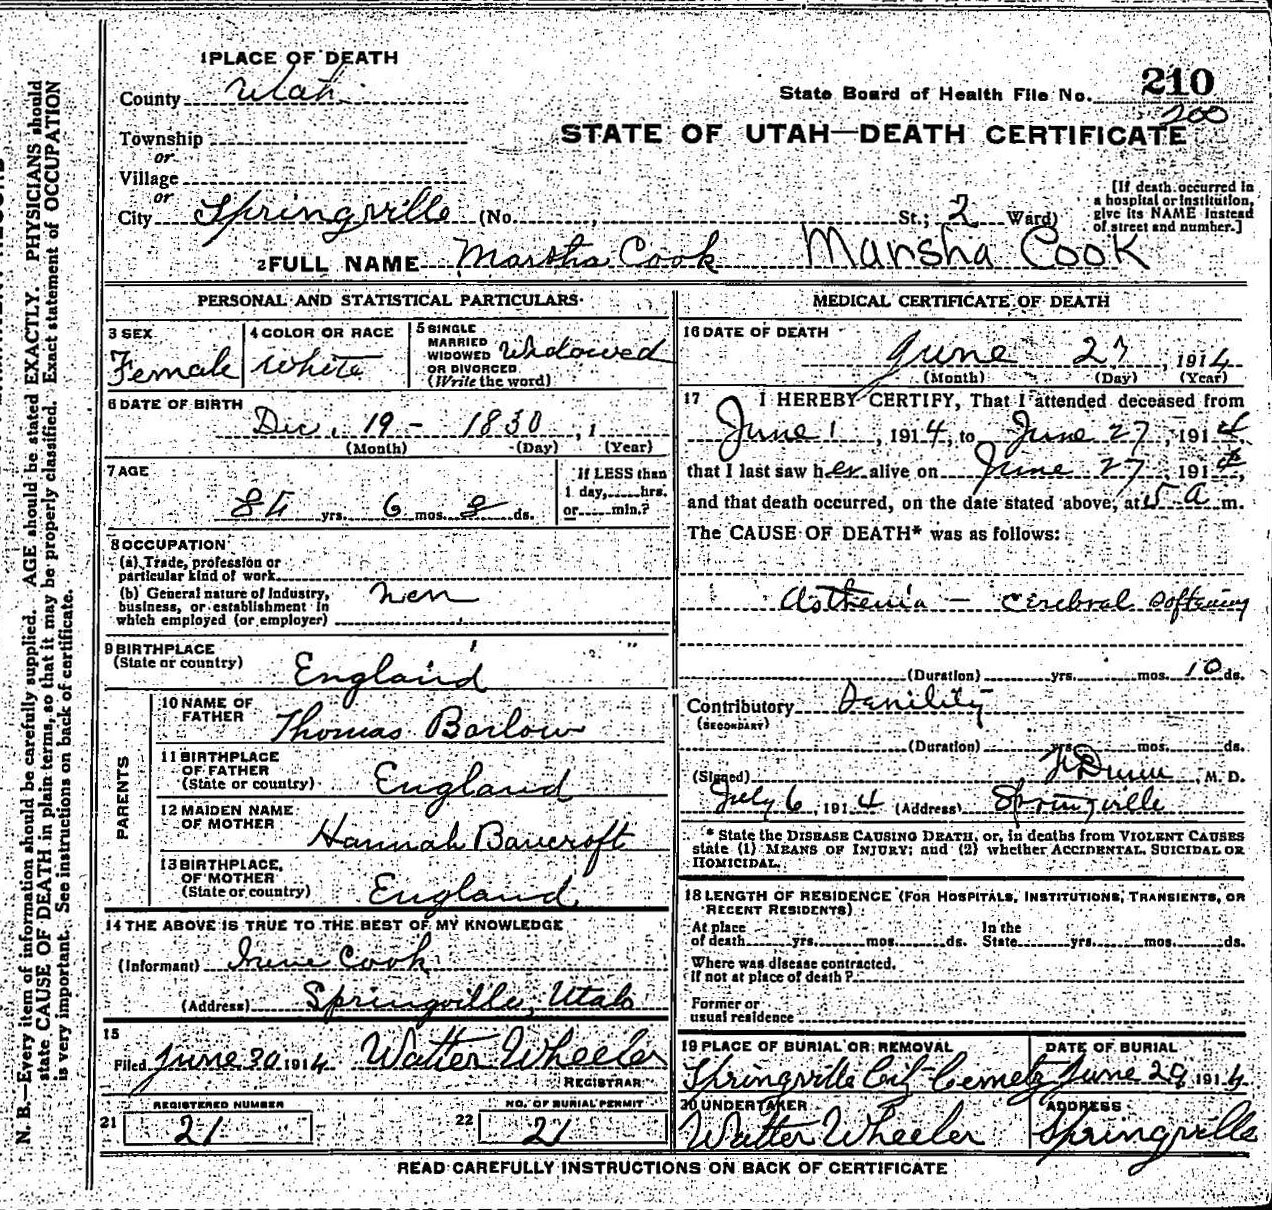 1 PLACE OF DEATH
County Utah
State Board of Health File No. 210
200
Township
or
STATE OF UTAH—DEATH CERTIFICATE
Village
or
City Springville (No. , St.; 2 Ward)
[If death occurred in
a hospital or institution,
give its NAME instead
of street and number.]
2 FULL NAME Marsha Cook Marsha Cook
PERSONAL AND STATISTICAL PARTICULARS
3 SEX
Female
4 COLOR OR RACE
White
5 SINGLE
MARRIED
WIDOWED
OR DIVORCED
(Write the word)
Widowed
6 DATE OF BIRTH
Dec. 19 - 1830 , 1
(Month) (Day) (Year)
7 AGE
yrs. 6 mos. 8 ds.
If LESS than
1 day, hrs.
or min.?
8 OCCUPATION
(a) Trade, profession or
particular kind of work
(b) General nature of Industry,
business, or establishment in
which employed (or employer)
9 BIRTHPLACE
(State or country)
England
PARENTS
10 NAME OF
FATHER
Thomas Barlow
11 BIRTHPLACE
OF FATHER
(State or country)
England
12 MAIDEN NAME
OF MOTHER
Hannah Bancroft
13 BIRTHPLACE
OF MOTHER
(State or country)
England
14 THE ABOVE IS TRUE TO THE BEST OF MY KNOWLEDGE
(Informant) Irene Cook
(Address) Springville, Utah
15
Filed June 30 1914 Walter Wheeler
REGISTRAR
21 REGISTERED NUMBER
21
22 NO. OF BURIAL PERMIT
21
MEDICAL CERTIFICATE OF DEATH
16 DATE OF DEATH
June 27 , 1914
(Month) (Day) (Year)
17 I HEREBY CERTIFY, That I attended deceased from
June 1 , 1914, to June 27 , 1914,
that I last saw her alive on June 27 , 1914,
and that death occurred, on the date stated above, at 5 a m.
The CAUSE OF DEATH* was as follows:
Asthenia — cerebral softening
(Duration) yrs. mos. 10 ds.
Contributory
(SECONDARY)
(Duration) yrs. mos. ds.
(Signed) Dunn , M. D.
July 6 , 1914 (Address) Springville
* State the DISEASE CAUSING DEATH, or, in deaths from VIOLENT CAUSES
state (1) MEANS OF INJURY; and (2) whether ACCIDENTAL, SUICIDAL OR
HOMICIDAL.
18 LENGTH OF RESIDENCE (FOR HOSPITALS, INSTITUTIONS, TRANSIENTS, OR
RECENT RESIDENTS)
At place
of death yrs. mos. ds.
In the
State yrs. mos. ds.
Where was disease contracted,
if not at place of death?
Former or
usual residence
19 PLACE OF BURIAL OR REMOVAL
Springville City
DATE OF BURIAL
June 29, 1914
20 UNDERTAKER
Walter Wheeler
ADDRESS
Springville
READ CAREFULLY INSTRUCTIONS ON BACK OF CERTIFICATE
N. B.—Every item of information should be carefully supplied. AGE should be stated EXACTLY. PHYSICIANS should
state CAUSE OF DEATH in plain terms, so that it may be properly classified. Exact statement of OCCUPATION
is very important. See instructions on back of certificate.